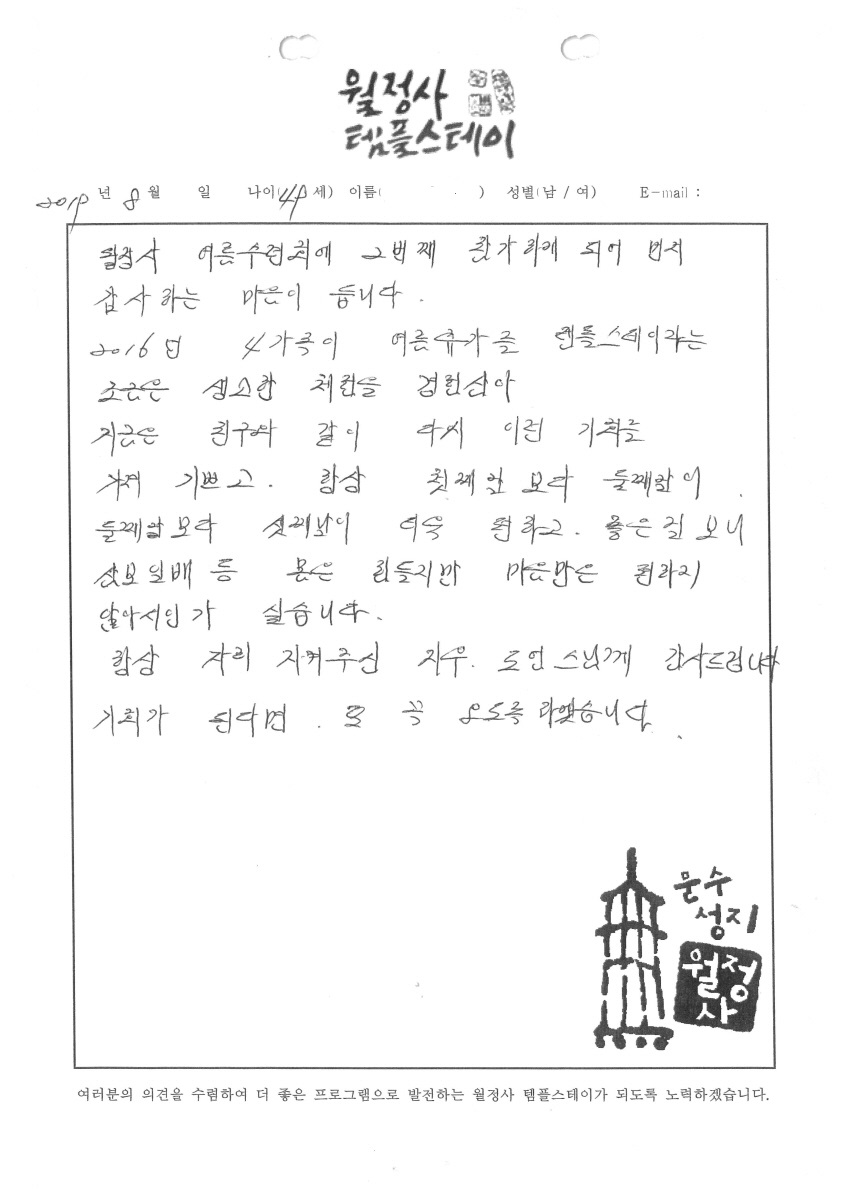 월정사
템플스테이
2019 년 8 월 일 나이( 49 세) 이름( ) 성별(남 / 여) E-mail :
월정사 여름수련회에 2번째 참가하게 되어 먼저
감사하는 마음이 듭니다.
2016년 4가족이 여름휴가를 템플스테이라는
조금은 생소한 체험을 경험삼아
지금은 친구와 같이 다시 이런 기회를
가져 기쁘고. 항상 첫째날 보다 둘째날이
둘째날보다 셋째날이 더욱 편하고. 좋은걸 보니
삼보일배 등 몸은 힘들지만 마음만은 편하지
않아서인가 싶습니다.
항상 자리 지켜주신 스님께 감사드립니다
기회가 된다면. 또 꼭 오도록 하겠습니다.
문수
성지
월정
사
여러분의 의견을 수렴하여 더 좋은 프로그램으로 발전하는 월정사 템플스테이가 되도록 노력하겠습니다.